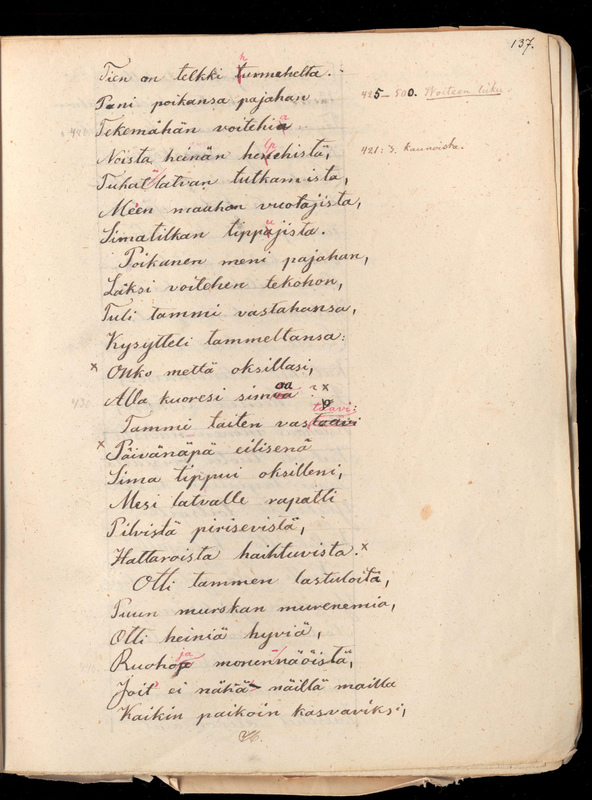 137.
Tien on telkki turmehelta.
Pani poikansa pajahan
425–500. Woiteen luku.
Tekemähän voitehia
Noista heinän helpehistä,
421: 3. kaunoista.
Tuhatlatvan tutkamista,
Meen maahan vuotajista,
Simatilkan tippujista.
Poikanen meni pajahan,
Läksi voitehen tekohon,
Tuli tammi vastahansa,
Kysytteli tammeltansa:
x Onko mettä oksillasi,
Alla kuoresi simoa? x
Tammi taiten vastoavi
taavi:
x Päivänäpä eilisenä
Sima tippui oksilleni,
Mesi latvalle rapatti
Pilvistä pirisevistä,
Hattaroista haihtuvista. x
Otti tammen lastuloita,
Puun murskan murenemia,
Otti heiniä hyviä,
Ruohoja monennäöistä,
Joit' ei nähä näillä mailla
Kaikin paikoin kasvaviksi,